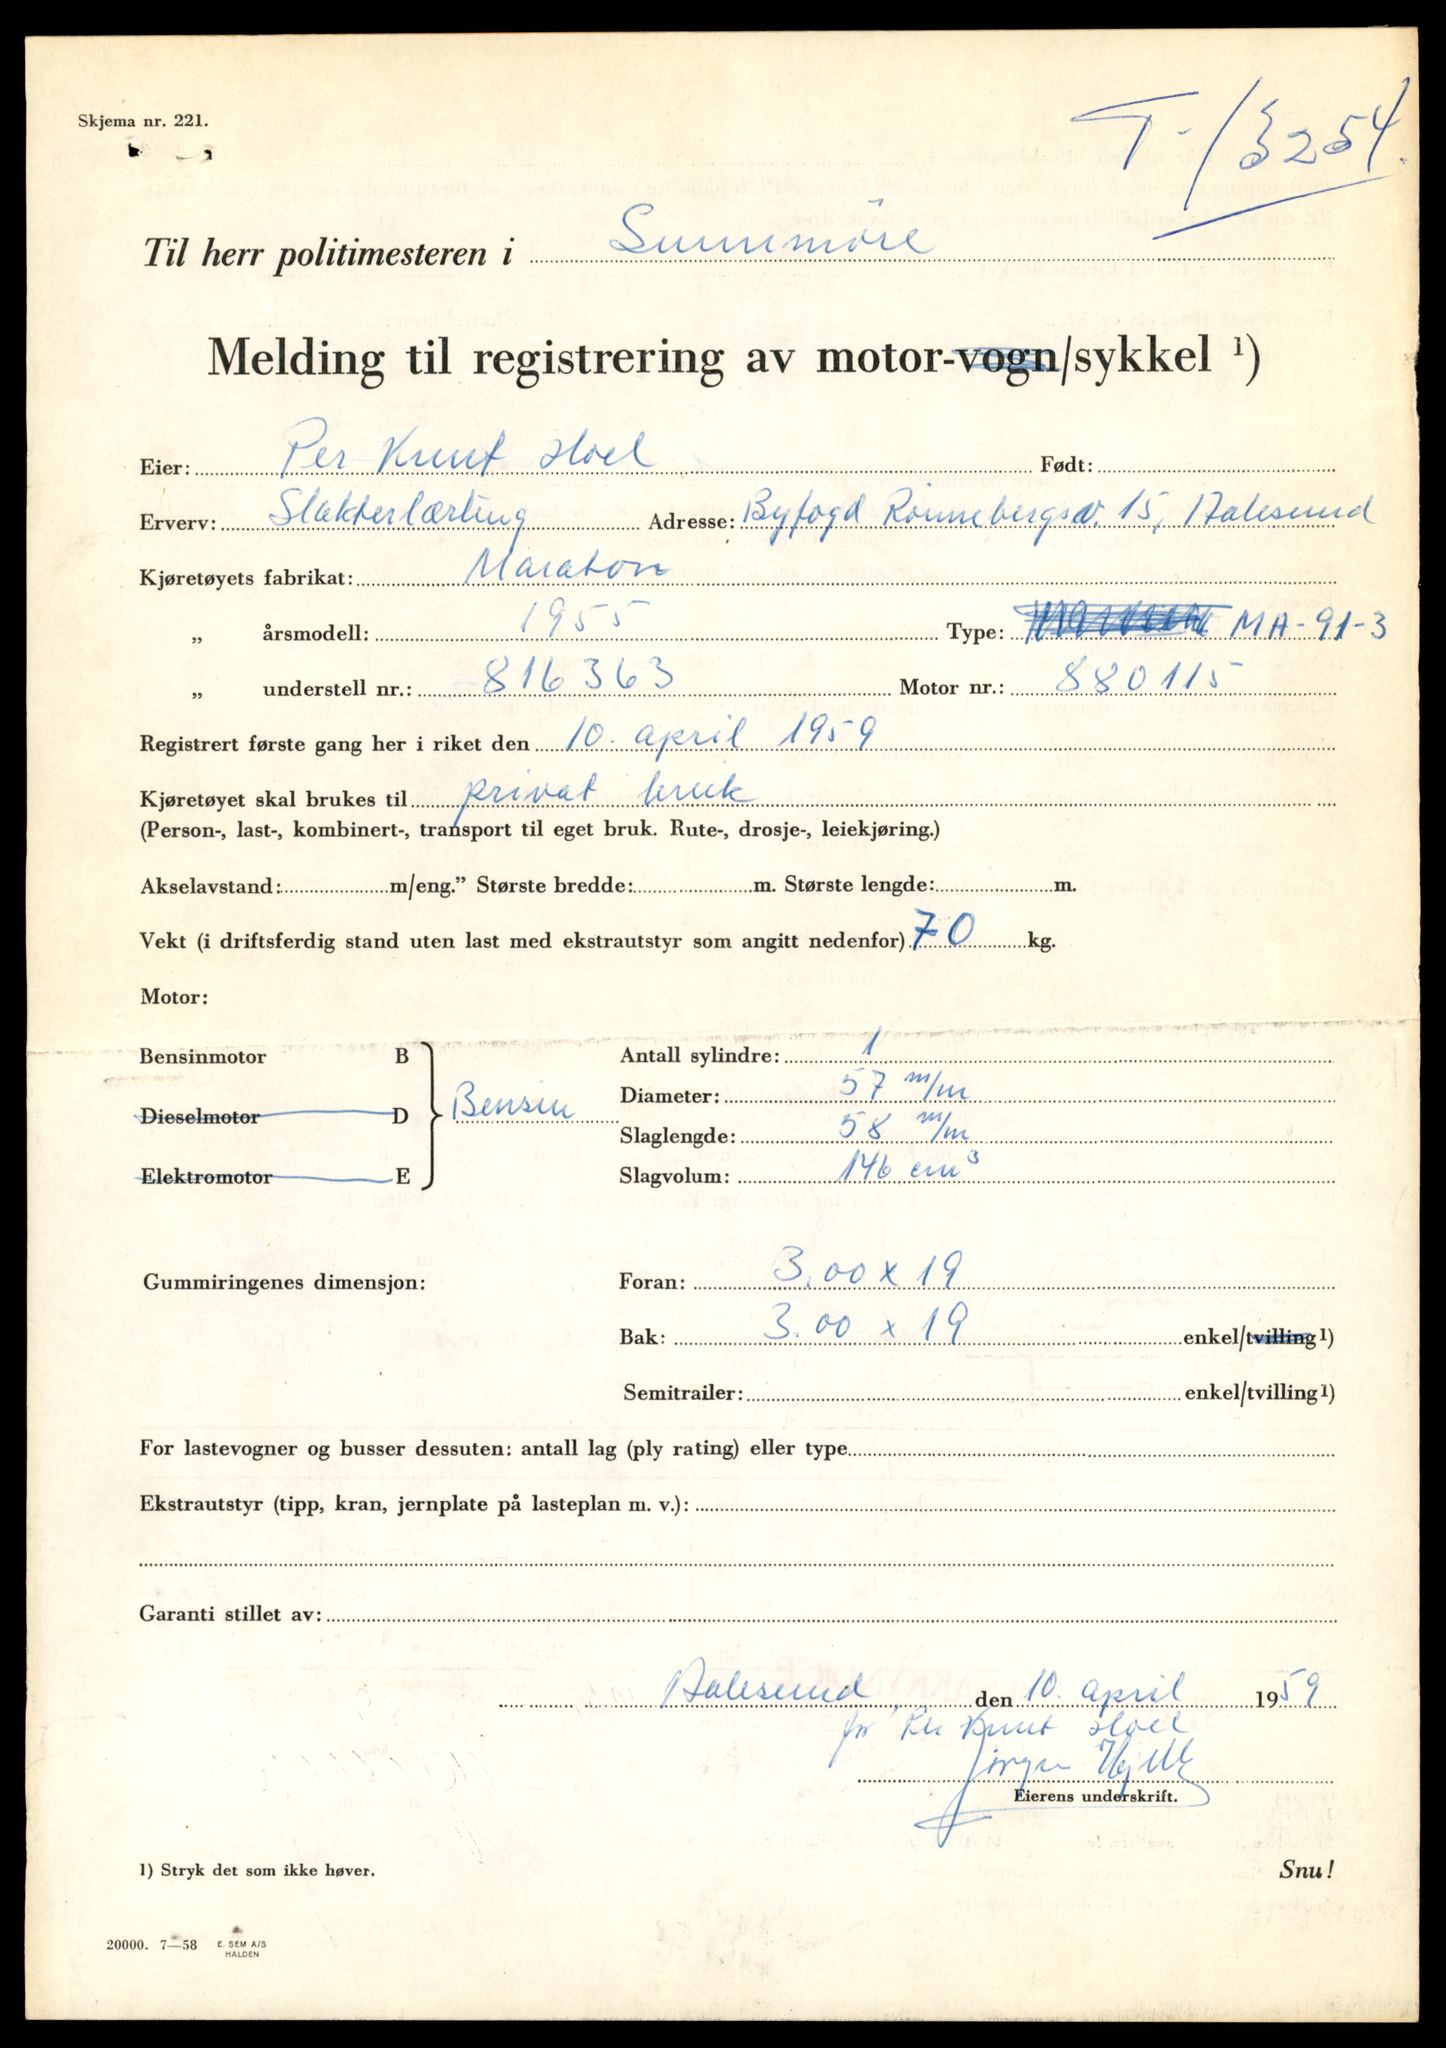 Skjema nr. 221.
T-13254.
Til herr politimesteren i Sunnmöre
Melding til registrering av motor-vogn/sykkel 1)
Eier: Per Knut Hoel Født:
Erverv: Slakterlærling Adresse: Byfogd Rönnebergsv. 15, Aalesund
Kjøretøyets fabrikat: Maraton
„ årsmodell: 1955 Type: MA-91-3
„ understell nr.: 816363 Motor nr.: 880115
Registrert første gang her i riket den 10. april 1959
Kjøretøyet skal brukes til privat bruk
(Person-, last-, kombinert-, transport til eget bruk. Rute-, drosje-, leiekjøring.)
Akselavstand: m/eng.” Største bredde: m. Største lengde: m.
Vekt (i driftsferdig stand uten last med ekstrautstyr som angitt nedenfor) 70 kg.
Motor:
Bensinmotor B Antall sylindre: 1
Diameter: 57 m/m
Dieselmotor D Bensin
Slaglengde: 58 m/m
Elektromotor E Slagvolum: 146 cm³
Gummiringenes dimensjon: Foran: 3.00 x 19
Bak: 3.00 x 19 enkel/tvilling 1)
Semitrailer: enkel/tvilling 1)
For lastevogner og busser dessuten: antall lag (ply rating) eller type
Ekstrautstyr (tipp, kran, jernplate på lasteplan m. v.):
Garanti stillet av:
Aalesund, den 10. april 1959
for Per Knut Hoel
Jörgen
Eierens underskrift.
1) Stryk det som ikke høver. Snu!
20000. 7—58 E. SEM A/S
HALDEN